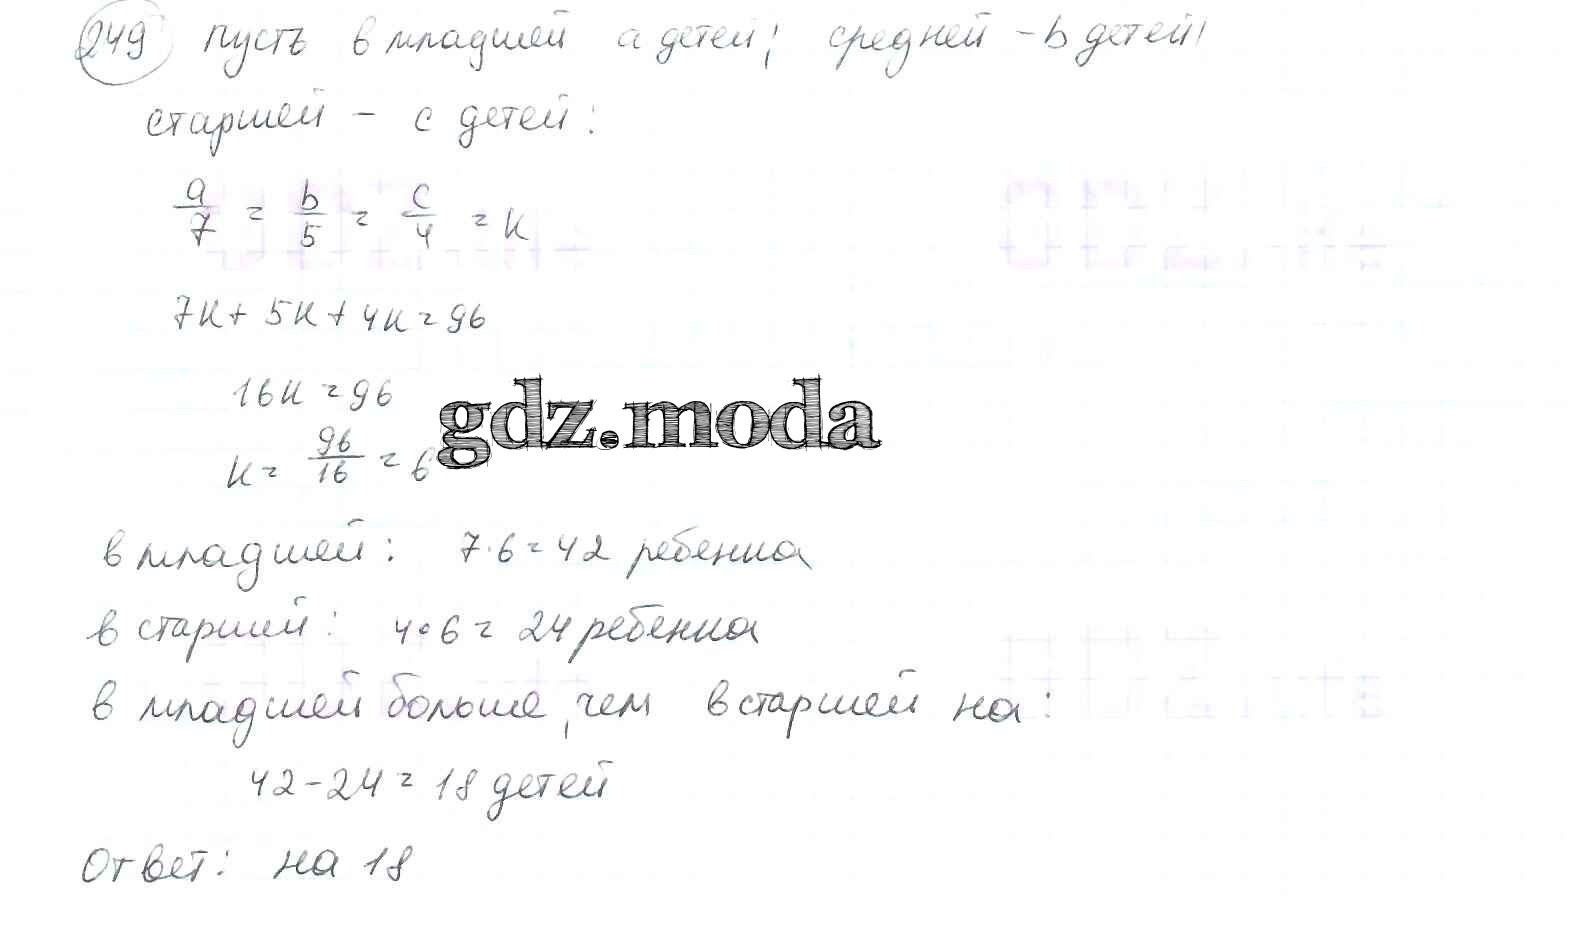 249 пусть в младшей a детей; средней - b детей;
старшей - c детей:
a/7 = b/5 = c/4 = к
7к + 5к + 4к = 96
16к = 96
gdz.moda
к = 96/16 = 6
в младшей: 7·6 = 42 ребенка
в старшей: 4·6 = 24 ребенка
в младшей больше, чем в старшей на:
42 - 24 = 18 детей
Ответ: на 18